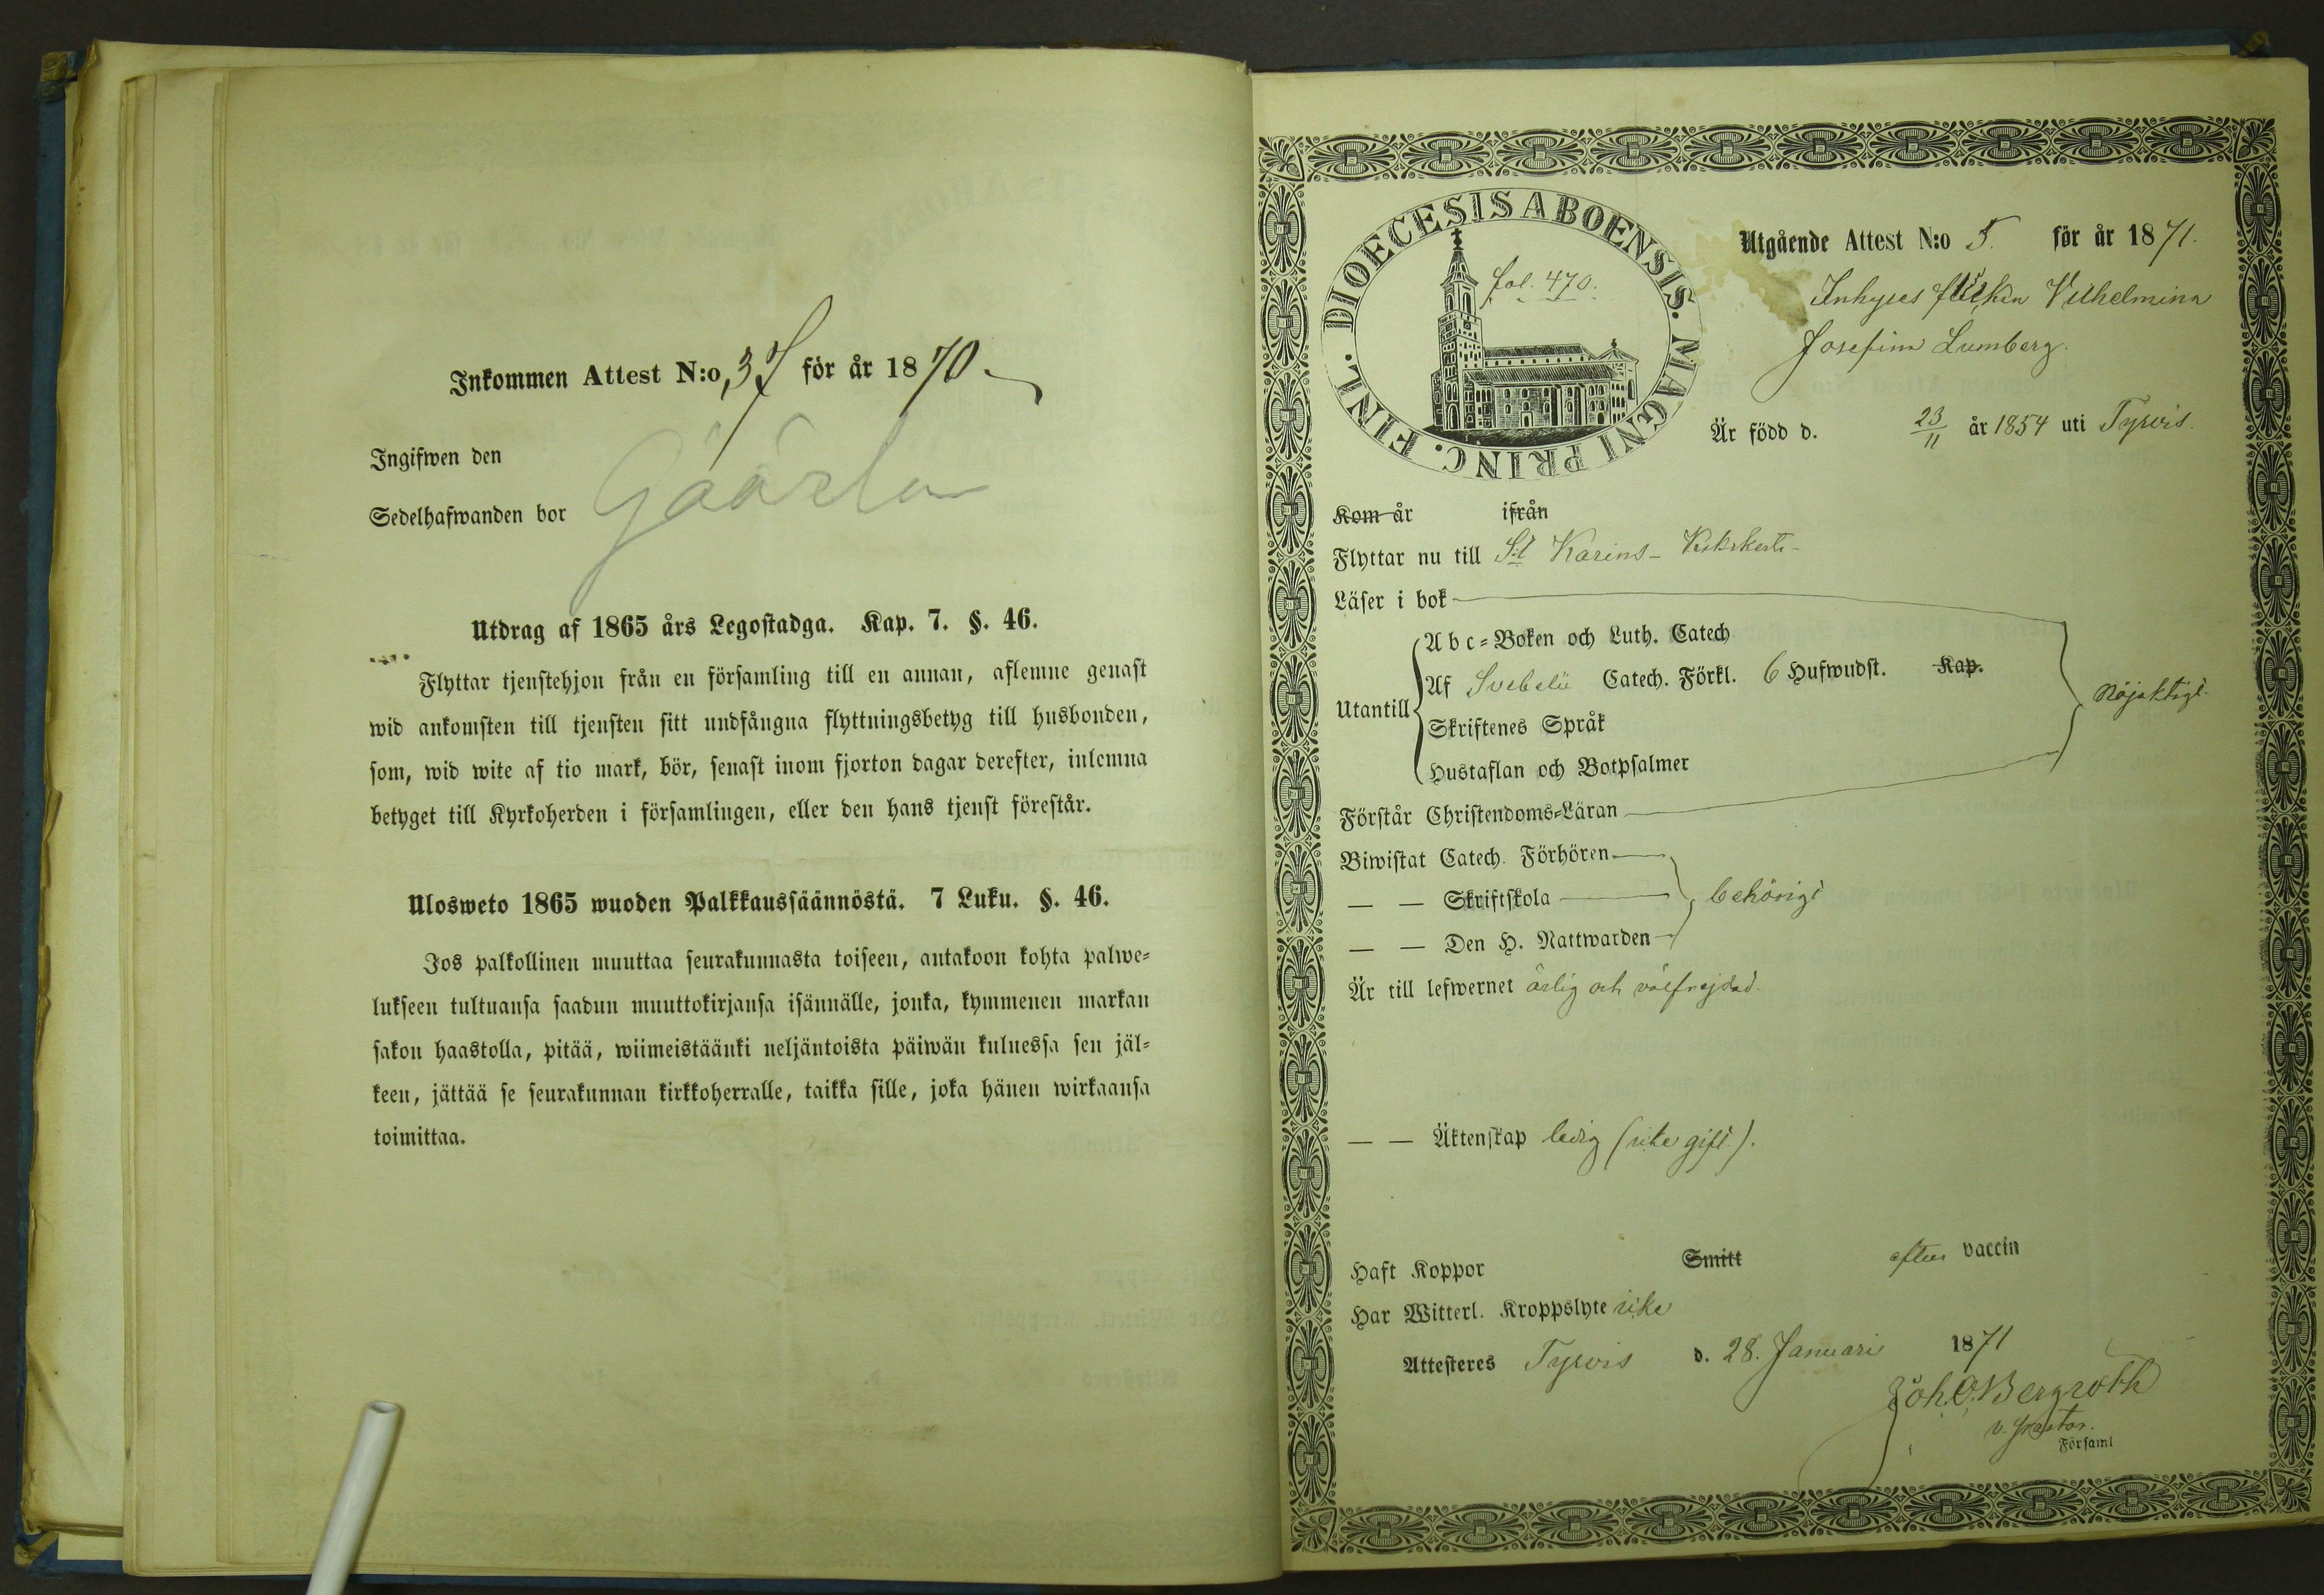 Inkommen Attest N:o, 37 för år 1870.
Ingifwen den
Sedelhafwanden bor
Utdrag af 1865 års Legostadga. Kap. 7. §. 46.
Flyttar tjenstehjon från en församling till en annan, aflemne genast
wid ankomsten till tjensten sitt undfångna flyttningsbetyg till husbonden,
som, wid wite af tio mark, bör, senast inom fjorton dagar derefter, inlemna
betyget till Kyrkoherden i församlingen, eller den hans tjenst förestår.
Ulosweto 1865 wuoden Palkkaussäännöstä. 7 Luku. §. 46.
Jos palkollinen muuttaa seurakunnasta toiseen, antakoon kohta palwe-
lukseen tultuansa saadun muuttokirjansa isännälle, jonka, kymmenen markan
sakon haastolla, pitää, wiimeistäänki neljäntoista päiwän kuluessa sen jäl-
keen, jättää se seurakunnan kirkkoherralle, taikka sille, joka hänen wirkaansa
toimittaa.
DIOECESIS ABOENSIS. MAGNI PRINC. FINL.
fol. 470.
Utgående Attest N:o 5. för år 1871.
Inhyses flickan Vilhelmina
Josefina Lumberg.
Är född d. 23/11 år 1854 uti Tyrvis.
Kom år ifrån
Flyttar nu till S:t Karins -
Läser i bok
Utantill
Abc-Boken och Luth. Catech
Af Svebelii Catech. Förkl. 6 Hufwudst. Kap.
Skriftenes Språk
Hustaflan och Botpsalmer
Nöjaktigt.
Förstår Christendoms-Läran
Biwistat Catech. Förhören
— — Skriftskola
— — Den H. Nattwarden
behörigt
Är till lefwernet ärlig och välfrejdad.
— — Äktenskap ledig (icke gift).
Haft Koppor Smitt efter vaccin
Har Witterl. Kroppslyte icke
Attesteres Tyrvis d. 28. Januari 1871
Joh. O. Bergroth
v. pastor.
Församl